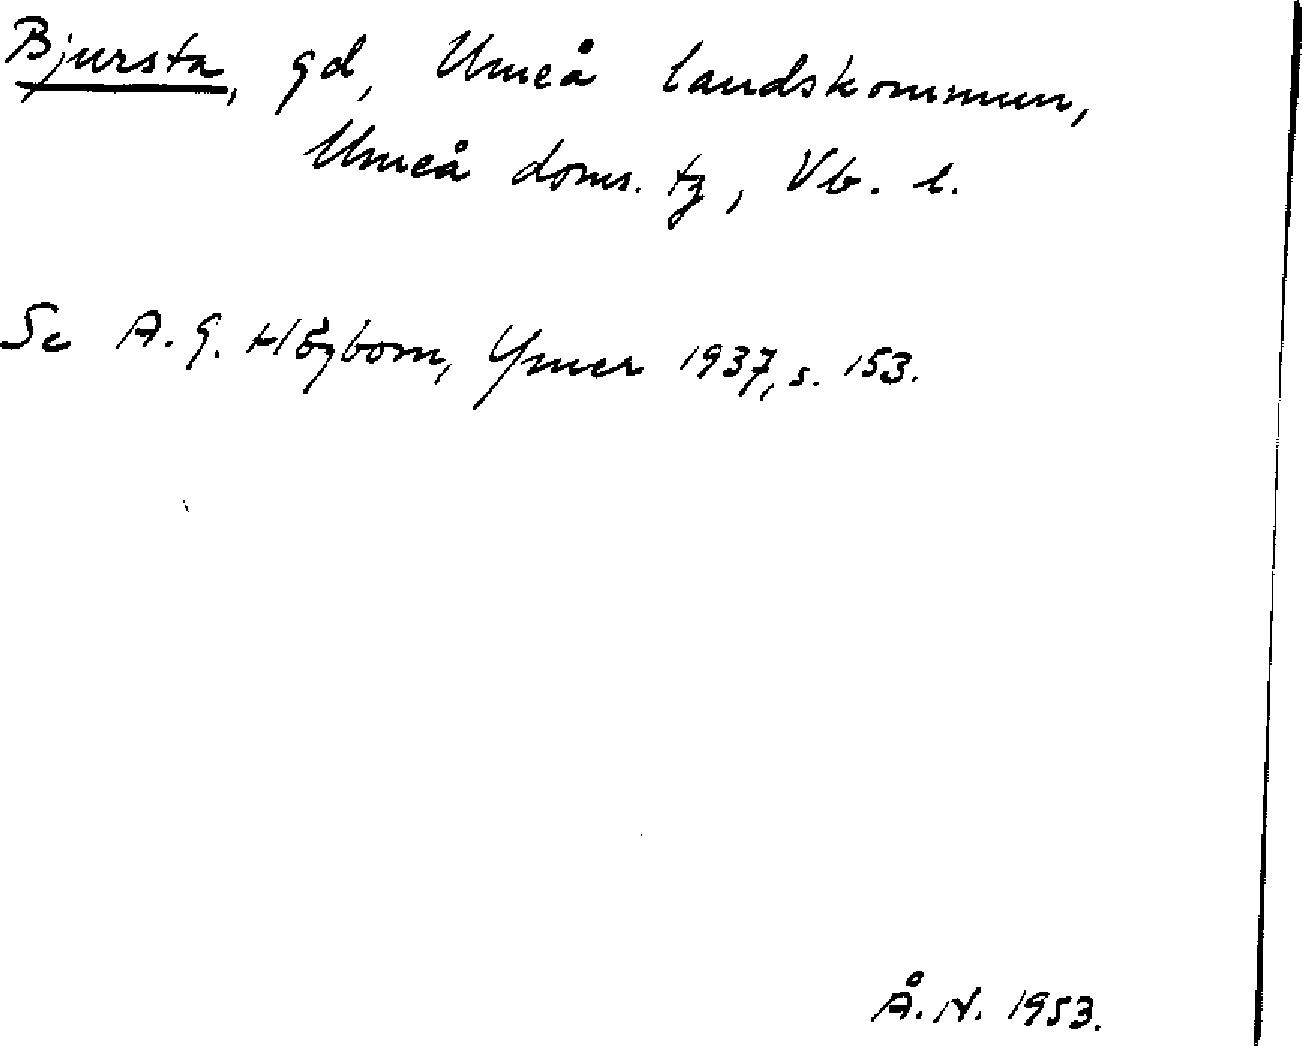 Bjursta, gd, Umeå landskommun,
Umeå doms. tg, Vb. l.
Se A. G. Högbom, Ymer 1937, s. 153.
Å. N. 1953.